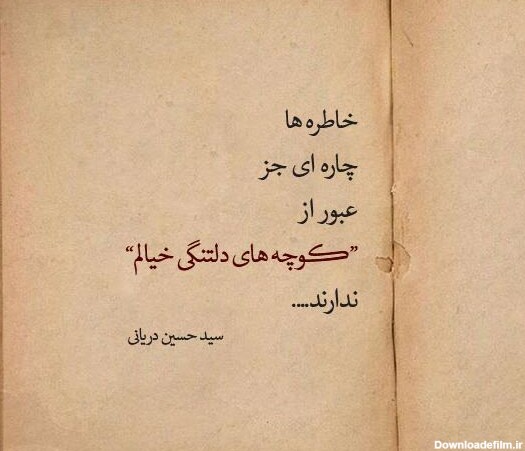 خاطره ها
چاره ای جز
عبور از
”کوچه های دلتنگی خیالم“
ندارند....
سید حسین دریانی
Downloadefilm.ir